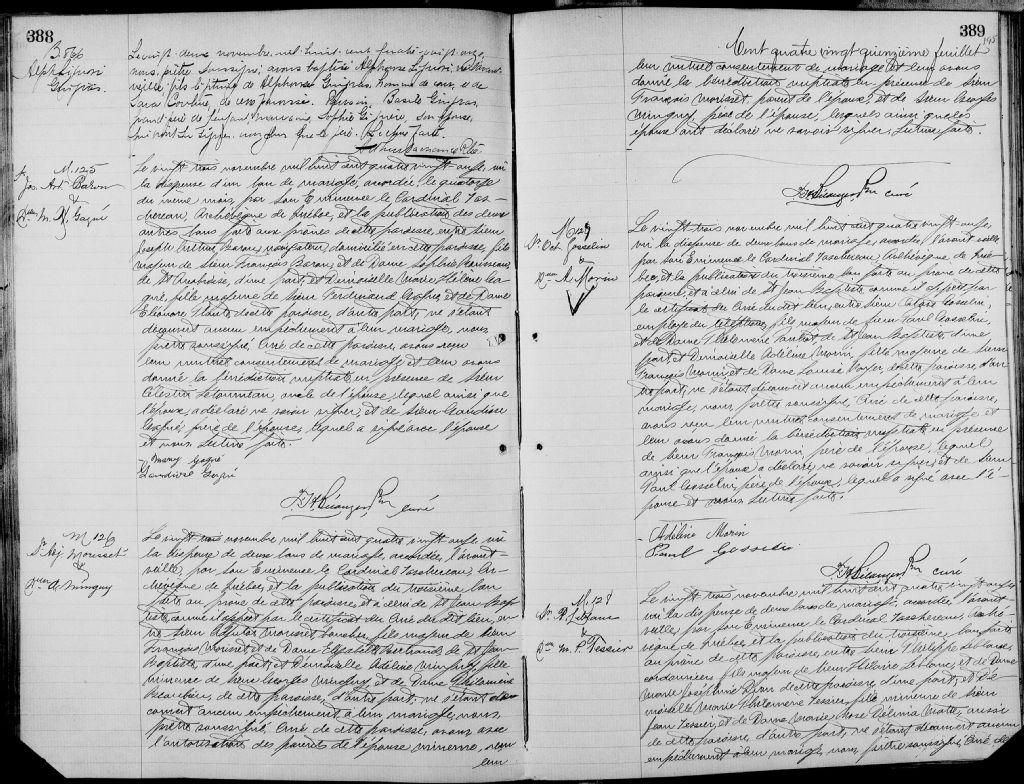 388
B. 866
Alph. Liguori
Gingras.
Le vingt-deux novembre, mil huit cent quatre-vingt onze,
nous, prêtre soussigné, avons baptisé Alphonse Liguori, né
veille, fils légitime de Alphonse Gingras, et de
de cette paroisse. Parrain, Basile Gingras,
grand-père de l'enfant, marraine, Sophie son épouse,
qui n'ont su signer, non plus que le père. Lecture faite.
Ptre
M. 125
Sr Jos. Art. Baron
&
Dlle M. H. Gagné
Le vingt trois novembre mil huit cent quatre vingt-onze, vu
la dispense d'un ban de mariage, accordée, le quatorze
du même mois, par Son Eminence le Cardinal Tas-
chereau, Archevêque de Québec, et la publication des deux
autres bans faite aux prônes de cette paroisse, entre Sieur
Joseph Arthur Baron, navigateur, domicilié en cette paroisse, fils
majeur de Sieur François Baron, et de Dame Sophie Rousseau,
de d'une part, et Demoiselle Marie Hélène Ga-
gné, fille mineure de Sieur Ferdinand Gagné, et de Dame
Eléonore de cette paroisse, d'autre part, ne s'étant
découvert aucun empêchement à leur mariage, nous,
prêtre soussigné, Curé de cette paroisse, avons reçu
leur mutuel consentement de mariage et leur avons
donné la bénédiction nuptiale en présence de Sieur
Célestin oncle de l'épouse, lequel ainsi que
l'époux, a déclaré ne savoir signer, et de Sieur
Gagné, père de l'épouse, lequel a signé avec l'épouse
et nous. Lecture faite.
Mary Gagné
Gagné
Bélanger, Ptre curé
M. 126
Sr Nap. Morisset
&
Dlle A. Minguy
Le vingt trois novembre mil huit cent quatre vingt onze vu
la dispense de deux bans de mariage, accordée, l'avant-
veille, par son Eminence le Cardinal Taschereau, Ar-
chevêque de Québec, et la publication du troisième ban
faite au prône de cette paroisse, et à celui de St Jean Bap-
tiste, comme il appert par le certificat du Curé du dit lieu, en-
tre Sieur Morisset, fils majeur de Sieur
François Morisset, et de Dame Elizabeth Bertrand, de St Jean
Baptiste, d'une part, et Demoiselle Adeline Minguy, fille
mineure de Sieur Georges Minguy, et de Dame Philomène
de cette paroisse, d'autre part, ne s'étant dé-
couvert aucun empêchement à leur mariage, nous,
prêtre soussigné, Curé de cette paroisse, avons avec
l'autorisation des parents de l'épouse mineure, reçu
leur
389
195
Cent quatre vingt quinzième feuillet
leur mutuel consentement de mariage et leur avons
donné la bénédiction nuptiale en présence de Sieur
François Morisset, parent de l'époux, et de Sieur Georges
Minguy, père de l'épouse, lesquels ainsi que les
époux ont déclaré ne savoir signer. Lecture faite.
Bélanger, Ptre curé
M. 127
Sr Oct. Gosselin
&
Dlle A. Morin
Le vingt-trois novembre mil huit cent quatre vingt onze,
vu la dispense de deux bans de mariage, accordée, l'avant veille
par son Eminence le Cardinal Taschereau, Archevêque de Qué-
bec, et la publication du troisième ban faite au prône de cette
paroisse, et à celui de St Jean Baptiste comme il appert par
le certificat du Curé du dit lieu, entre Sieur Gosselin,
employé du téléphone, fils majeur de Sieur Paul Gosselin,
et de Dame Philomène de St Jean Baptiste, d'une
part, et Demoiselle Adéline Morin, fille majeure de Sieur
François Morin, et de Dame Louise Voyer, de cette paroisse, d'au-
tre part, ne s'étant découvert aucun empêchement à leur
mariage, nous, prêtre soussigné, Curé de cette paroisse,
avons reçu leur mutuel consentement de mariage et
leur avons donné la bénédiction nuptiale en présence
de Sieur François Morin, père de l'épouse, lequel
ainsi que l'époux a déclaré ne savoir signer, et de Sieur
Paul Gosselin, père de l'époux, lequel a signé avec l'é-
pouse et nous. Lecture faite.
Adéline Morin
Paul Gosselin
Bélanger, Ptre curé
M. 128
Sr P. Leblanc
&
Dlle M. P. Tessier
Le vingt trois novembre mil huit cent quatre vingt onze
vu la dispense de deux bans de mariage, accordée l'avant
veille, par Son Eminence le Cardinal Taschereau, Arche-
vêque de Québec, et la publication du troisième ban faite
au prône de cette paroisse, entre Sieur Philippe Leblanc,
cordonnier, fils majeur de Sieur Hilaire Leblanc, et de Dame
Marie Josephine de cette paroisse, d'une part, et De-
moiselle Marie Philomène Tessier, fille mineure de Sieur
Jean Tessier, et de Dame Marie Rose Délima Matte, aussi
de cette paroisse, d'autre part, ne s'étant découvert aucun
empêchement à leur mariage, nous, prêtre soussigné, Curé de